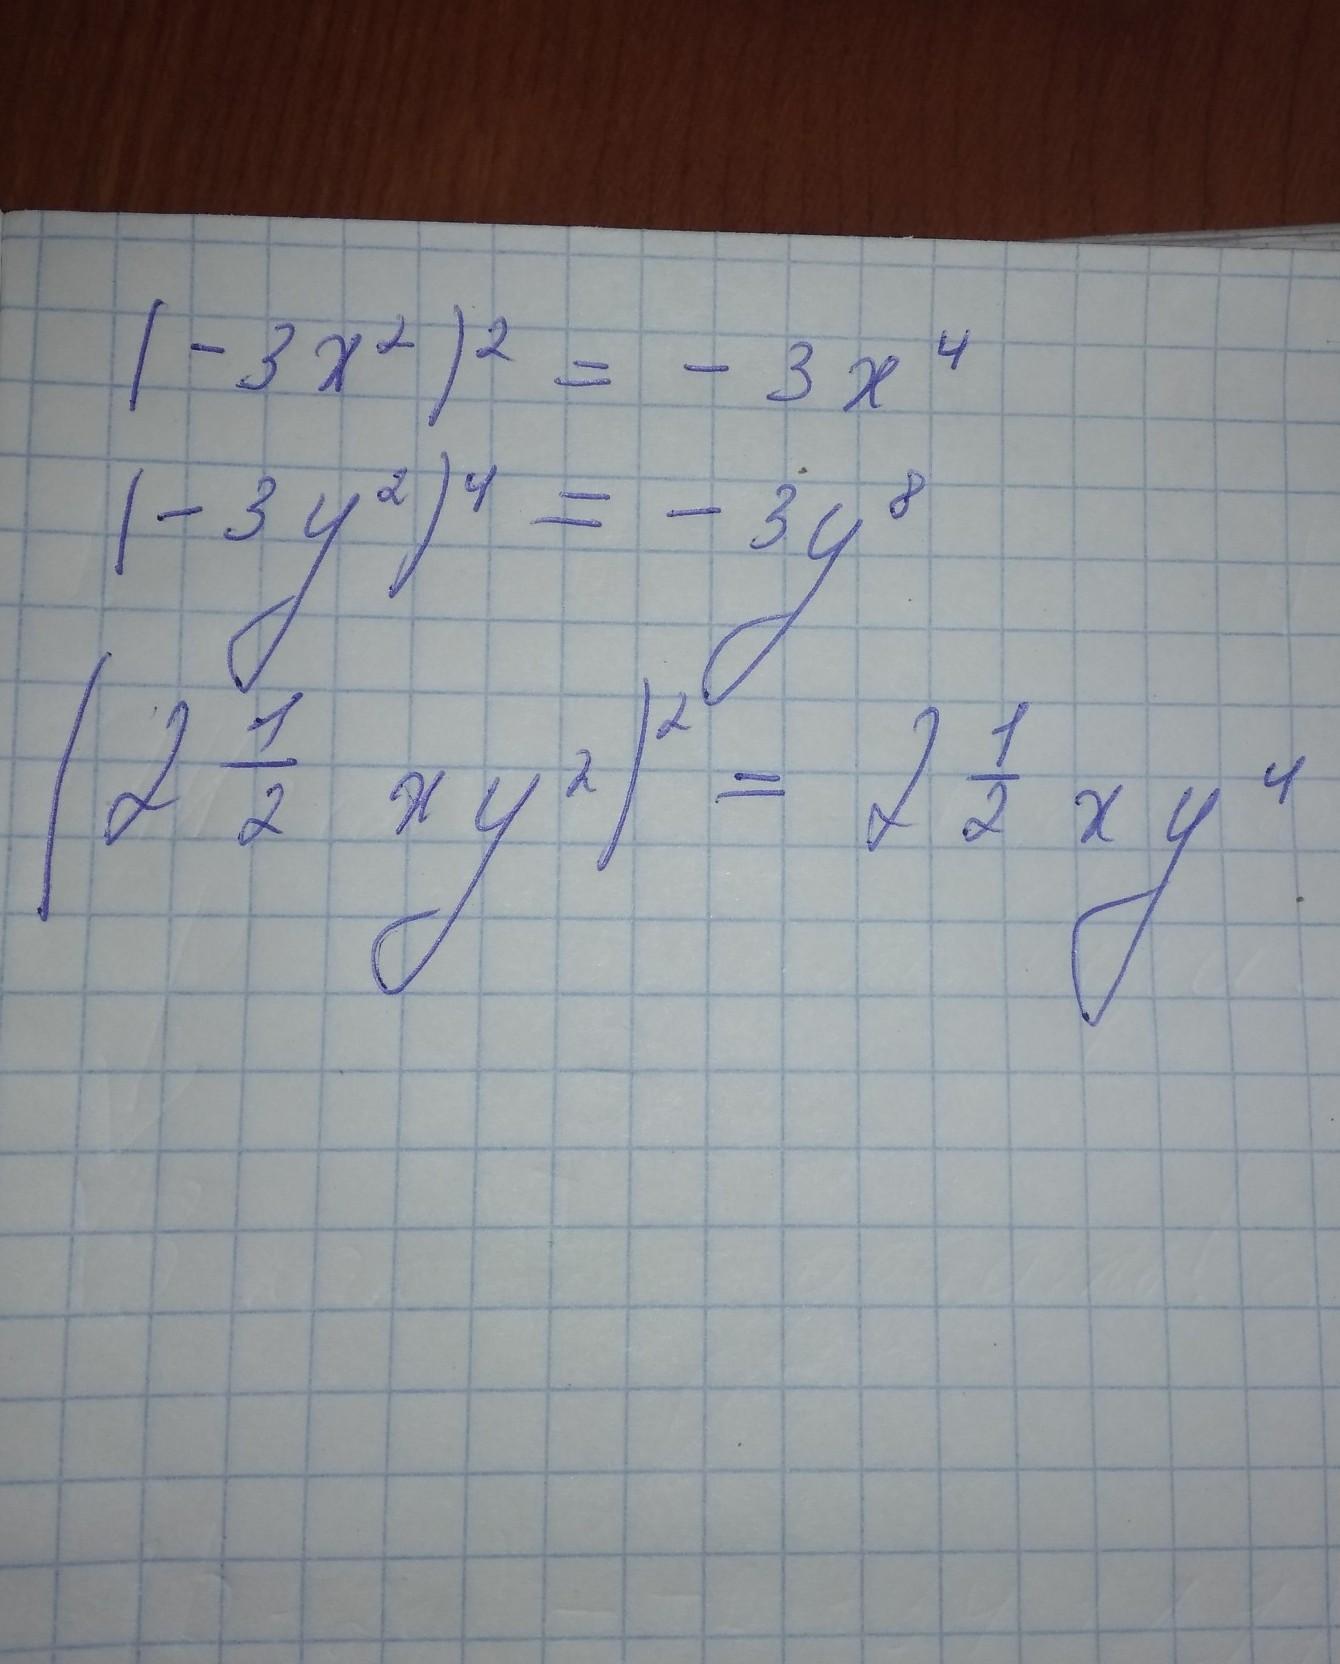 (-3x²)² = -3x⁴
(-3y²)⁴ = -3y⁸
(2 1/2 xy²)² = 2 1/2 xy⁴